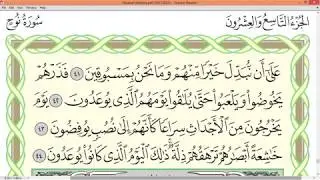 الجُزْءُ التَّاسِعُ وَالعِشْرُونَ سُورَةُ نُوحٍ
عَلَىٰٓ أَن نُّبَدِّلَ خَيْرًا مِّنْهُمْ وَمَا نَحْنُ بِمَسْبُوقِينَ ٤١ فَذَرْهُمْ
يَخُوضُوا۟ وَيَلْعَبُوا۟ حَتَّىٰ يُلَٰقُوا۟ يَوْمَهُمُ ٱلَّذِى يُوعَدُونَ ٤٢ يَوْمَ
يَخْرُجُونَ مِنَ ٱلْأَجْدَاثِ سِرَاعًا كَأَنَّهُمْ إِلَىٰ نُصُبٍ يُوفِضُونَ ٤٣
خَٰشِعَةً أَبْصَٰرُهُمْ تَرْهَقُهُمْ ذِلَّةٌ ذَٰلِكَ ٱلْيَوْمُ ٱلَّذِى كَانُوا۟ يُوعَدُونَ ٤٤